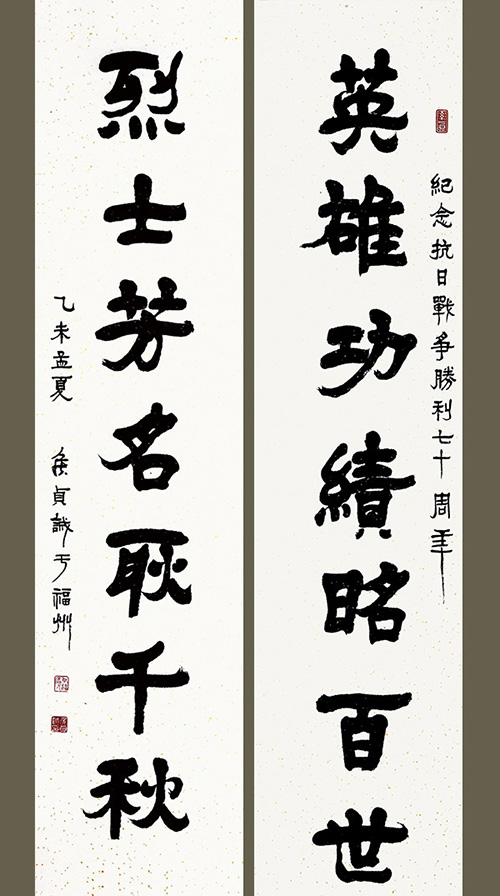 紀念抗日戰爭勝利七十周年
英雄功績昭百世
烈士芳名耿千秋
乙未孟夏 侯貞誠于福州